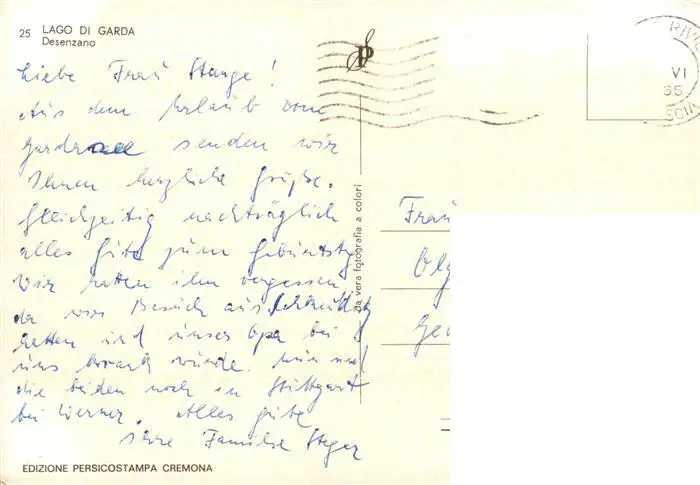 25 LAGO DI GARDA
Desenzano
Liebe Frau Stange!
Aus dem Urlaub vom
Gardasee senden wir
Ihnen herzliche Grüße.
Gleichzeitig nachträglich
alles Gute zum Geburtstg
Wir hatten ihn vergessen
da wir Besuch aus
hatten und unser Opa bei
uns krank wurde. Nun sind
die beiden noch in Stuttgart
bei Werner. Alles Gute
Ihre Familie Steger
EDIZIONE PERSICOSTAMPA CREMONA
da vera fotografia a colori
VI
Frau